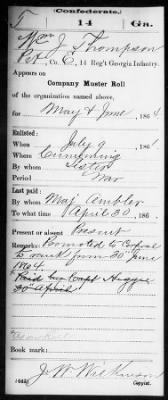 (Confederate.)
T 14 Ga.
Wm J Thompson
Pvt, Co. C, 14 Reg't Georgia Infantry.
Appears on
Company Muster Roll
of the organization named above,
for May & June, 1864
Enlisted:
When July 9, 186
Where Cumming
By
Period War
Last paid:
By Maj Ambler
To what time April 30, 186
Present or absent Present
Remarks: Promoted to Corporal
to rank from 30" June
30" April
Book mark:
J. W. Wilkinson
(642)